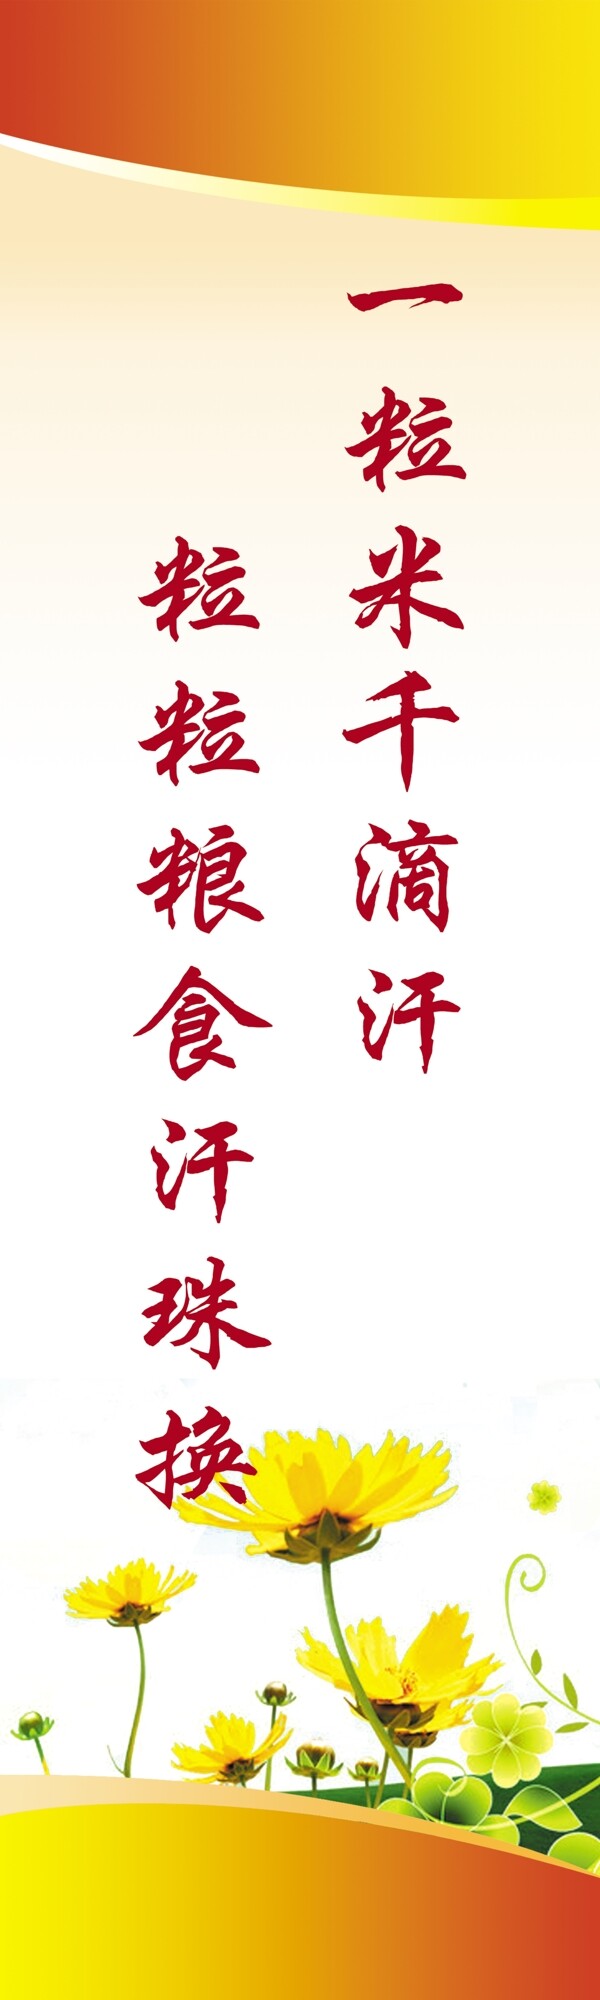 一粒米千滴汗
粒粒粮食汗珠换